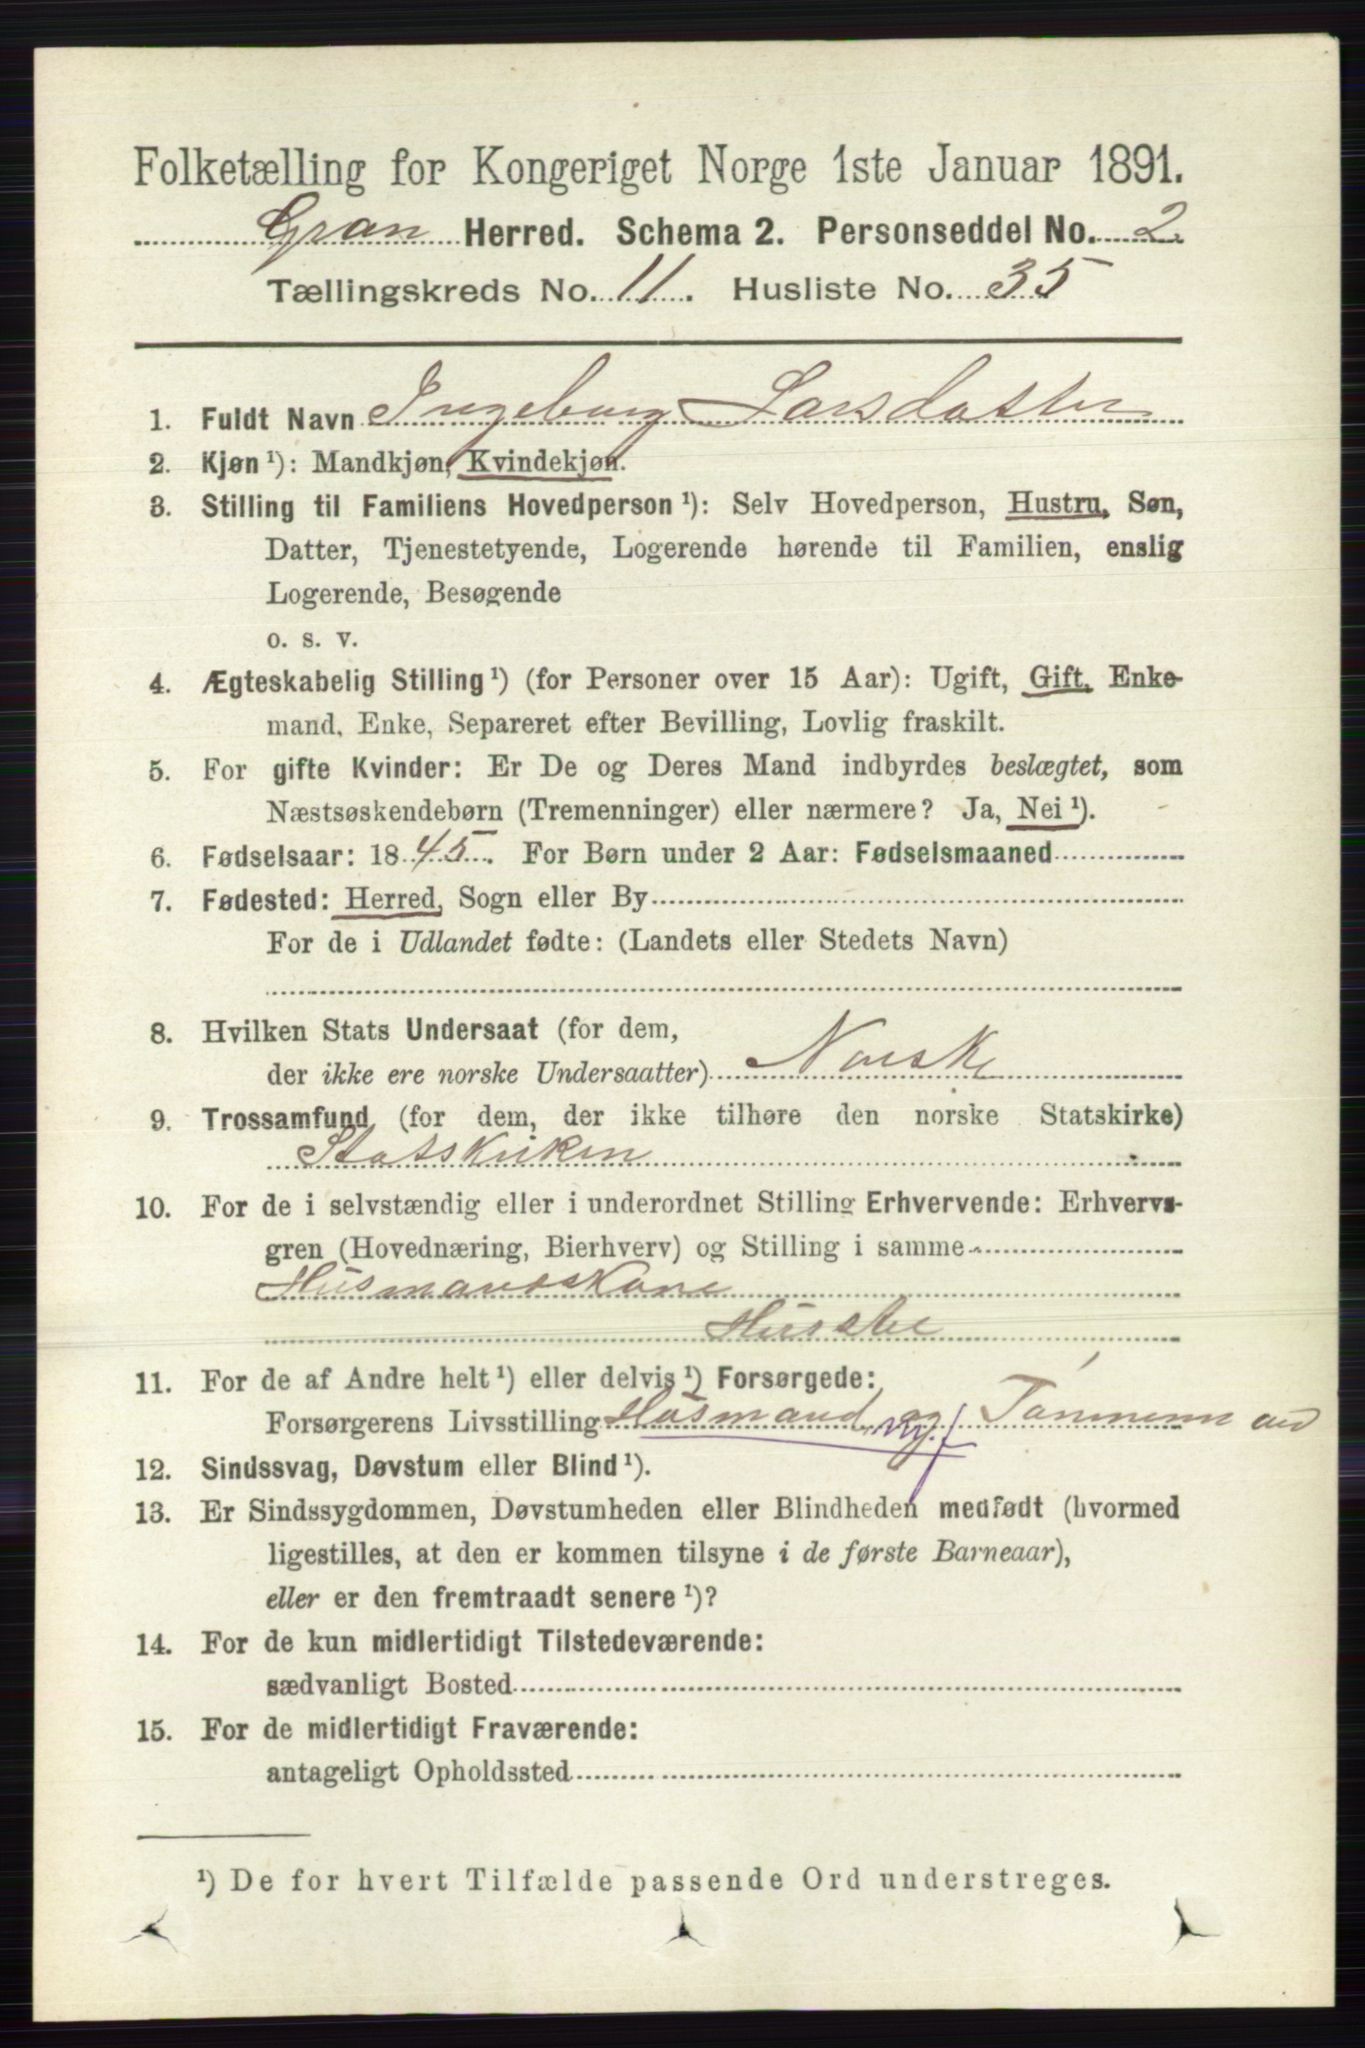 Folketælling for Kongeriget Norge 1ste Januar 1891.
Gran Herred. Schema 2. Personseddel No. 2.
Tællingskreds No. 11. Husliste No. 35
1. Fuldt Navn Ingeborg Larsdatter
2. Kjøn ¹): Mandkjøn, Kvindekjøn.
3. Stilling til Familiens Hovedperson ¹): Selv Hovedperson, Hustru, Søn,
Datter, Tjenestetyende, Logerende hørende til Familien, enslig
Logerende, Besøgende
o. s. v.
4. Ægteskabelig Stilling ¹) (for Personer over 15 Aar): Ugift, Gift, Enke-
mand, Enke, Separeret efter Bevilling, Lovlig fraskilt.
5. For gifte Kvinder: Er De og Deres Mand indbyrdes beslægtet, som
Næstsøskendebørn (Tremenninger) eller nærmere? Ja, Nei ¹).
6. Fødselsaar: 1845. For Børn under 2 Aar: Fødselsmaaned
7. Fødested: Herred, Sogn eller By
For de i Udlandet fødte: (Landets eller Stedets Navn)
8. Hvilken Stats Undersaat (for dem,
der ikke ere norske Undersaatter) Norsk
9. Trossamfund (for dem, der ikke tilhøre den norske Statskirke)
Statskirken
10. For de i selvstændig eller i underordnet Stilling Erhvervende: Erhvervs-
gren (Hovednæring, Bierhverv) og Stilling i samme
Husmandskone
11. For de af Andre helt ¹) eller delvis ¹) Forsørgede:
Forsørgerens Livsstilling Husmand og Tømmermand
12. Sindssvag, Døvstum eller Blind ¹).
13. Er Sindssygdommen, Døvstumheden eller Blindheden medfødt (hvormed
ligestilles, at den er kommen tilsyne i de første Barneaar),
eller er den fremtraadt senere ¹)?
14. For de kun midlertidigt Tilstedeværende:
sædvanligt Bosted
15. For de midlertidigt Fraværende:
antageligt Opholdssted
¹) De for hvert Tilfælde passende Ord understreges.